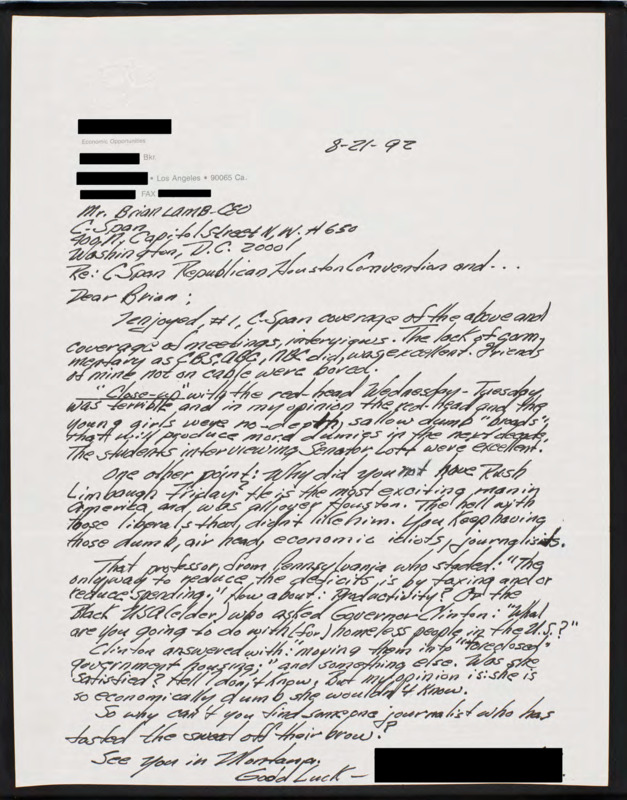 8-21-92
Economic Opportunities
Bkr.
• Los Angeles • 90065 Ca.
FAX
Mr. Brian Lamb-CEO
C-Span
400 N, Capitol Street N,W. #650
Washington, D.C. 20001,
Re: C-Span Republican Houston Convention and...
Dear Brian;
I enjoyed, #1, C-Span coverage of the above and
coverage of meetings, interviews. The lack of com,
mentary as CBS, ABC, NBC did, was excellent. Friends
of mine not on cable were bored.
"Close-up" with the red-head Wednesday-Tuesday
was terrible, and in my opinion the red-head and the
young girls were no-depth, sallow dumb "broads",
that will produce more dummies in the next decade,
The students interviewing Senator Lott were excellent.
One other point: Why did you not have Rush
Limbaugh Friday? He is the most exciting man in
America, and was all over Houston. The hell with
those liberals that didn't like him. You keep having
those dumb, air head, economic idiots, journalists.
That professor, from Pennsylvania who stated: "The
only way to reduce the deficits, is by taxing and or
reduce spending." How about: Productivity? Or the
Black USA (elder) who asked Governor Clinton: "What
are you going to do with (for) homeless people in the U.S.?"
Clinton answered with: "moving them into "foreclosed"
government housing;" and something else. Was she
satisfied? Hell I don't know, but my opinion is: she is
so economically dumb she wouldn't know.
So why can't you find someone, journalist who has
tasted the sweat off their brow?
See you in Montana.
Good Luck -